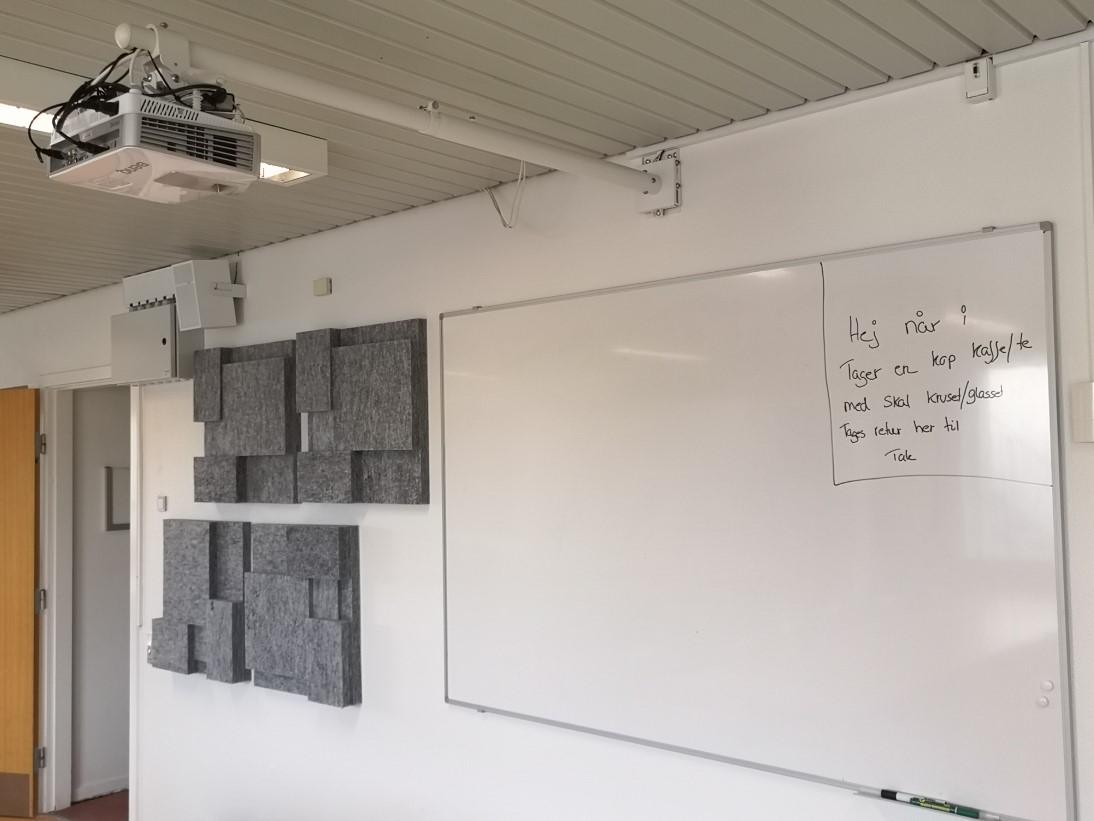 BenQ
Hej når i
Tager en kop kaffe/te
med skal kruset/glasset
Tages retur her til
Tak